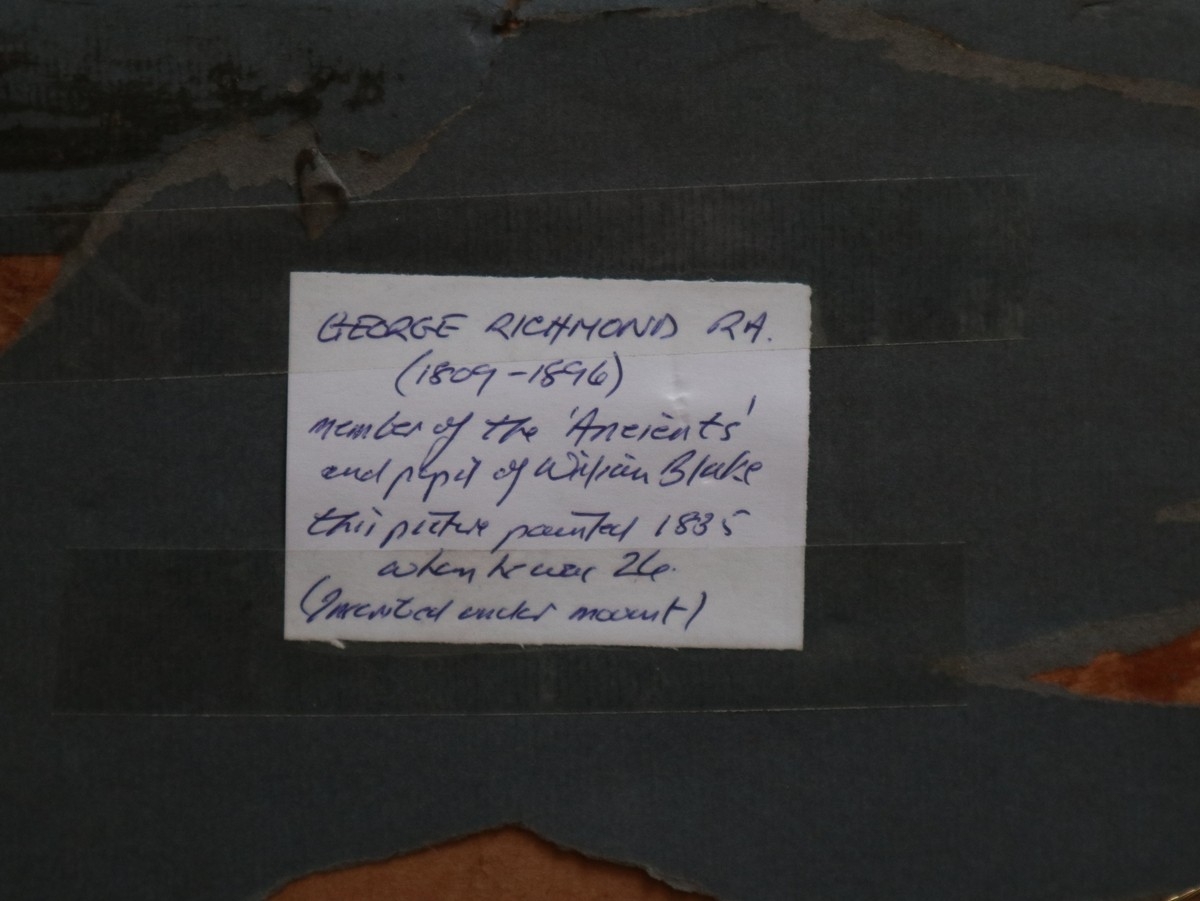 GEORGE RICHMOND RA.
(1809-1896)
member of the 'Ancients'
and pupil of William Blake
this picture painted 1835
when he was 26.
( under mount)